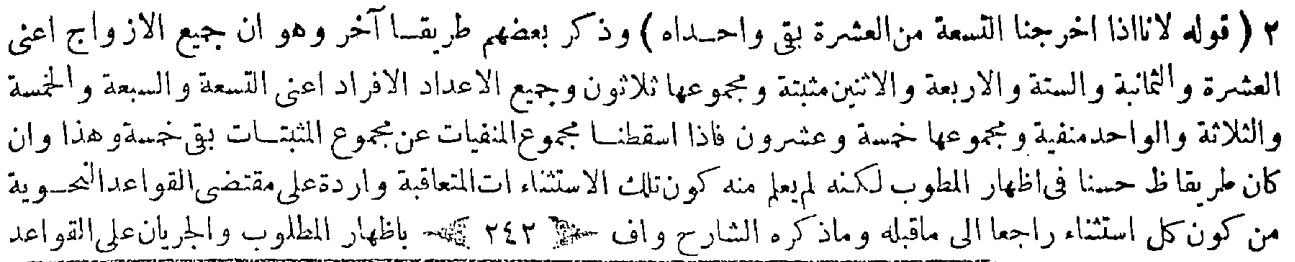 ٢ ( قوله لانااذا اخرجنا التسعة من العشرة بقى واحـداه ) وذكر بعضهم طريقـا آخر وهو ان جميع الازواج اعنى
العشرة والثمانية والستة والاربعة والاثنين مثبتة ومجموعها ثلاثون وجميع الاعداد الافراد اعنى التسعة والسبعة والخمسة
والثلاثة والواحد منفية ومجموعها خمسة وعشرون فاذا اسقطنـا مجموع المنفيات عن مجموع المثبتـات بقى خمسة وهذا وان
كان طريقا ظ حسنا فى اظهار المطوب لكنه لم يعلم منه كون تلك الاستثناء ات المتعاقبة واردة على مقتضى القواعد النحـوية
من كون كل استثناء راجعا الى ماقبله وماذكره الشارح واف ﴿ ٢٤٢ ﴾ باظهار المطلوب والجريان على القواعد